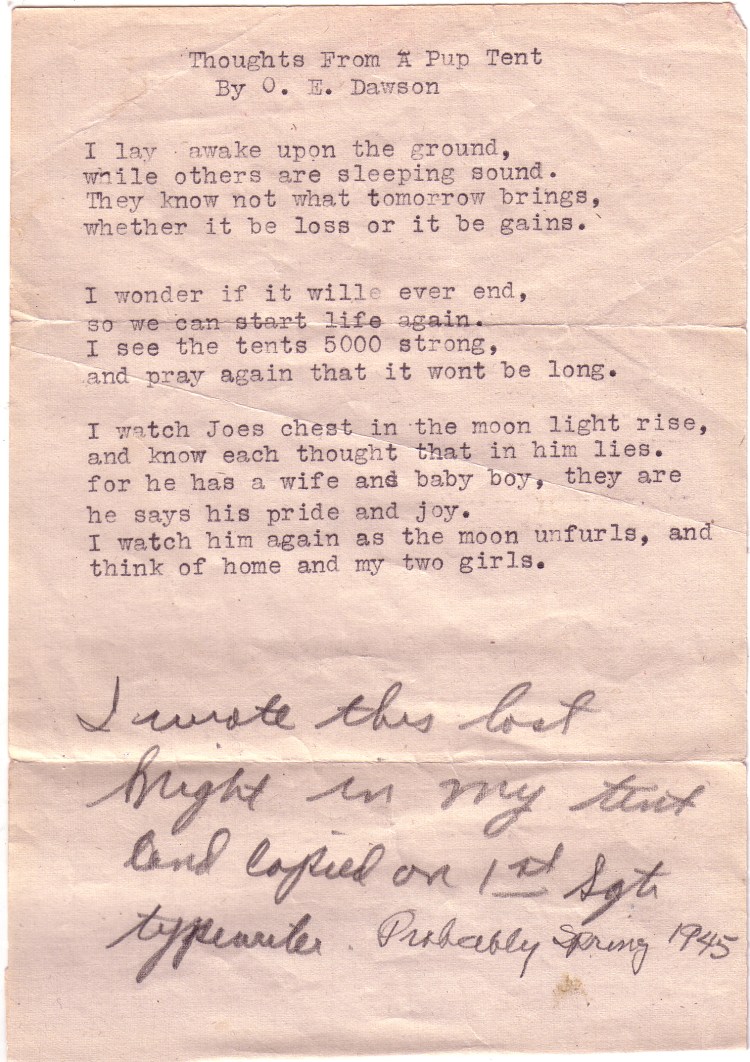 Thoughts From A Pup Tent
By O. E. Dawson
I lay awake upon the ground,
while others are sleeping sound.
They know not what tomorrow brings,
whether it be loss or it be gains.
I wonder if it wille ever end,
so we can start life again.
I see the tents 5000 strong,
and pray again that it wont be long.
I watch Joes chest in the moon light rise,
and know each thought that in him lies.
for he has a wife and baby boy, they are
he says his pride and joy.
I watch him again as the moon unfurls, and
think of home and my two girls.
I wrote this last
night in my tent
and copied on 1st Sgts
typewriter. Probably Spring 1945